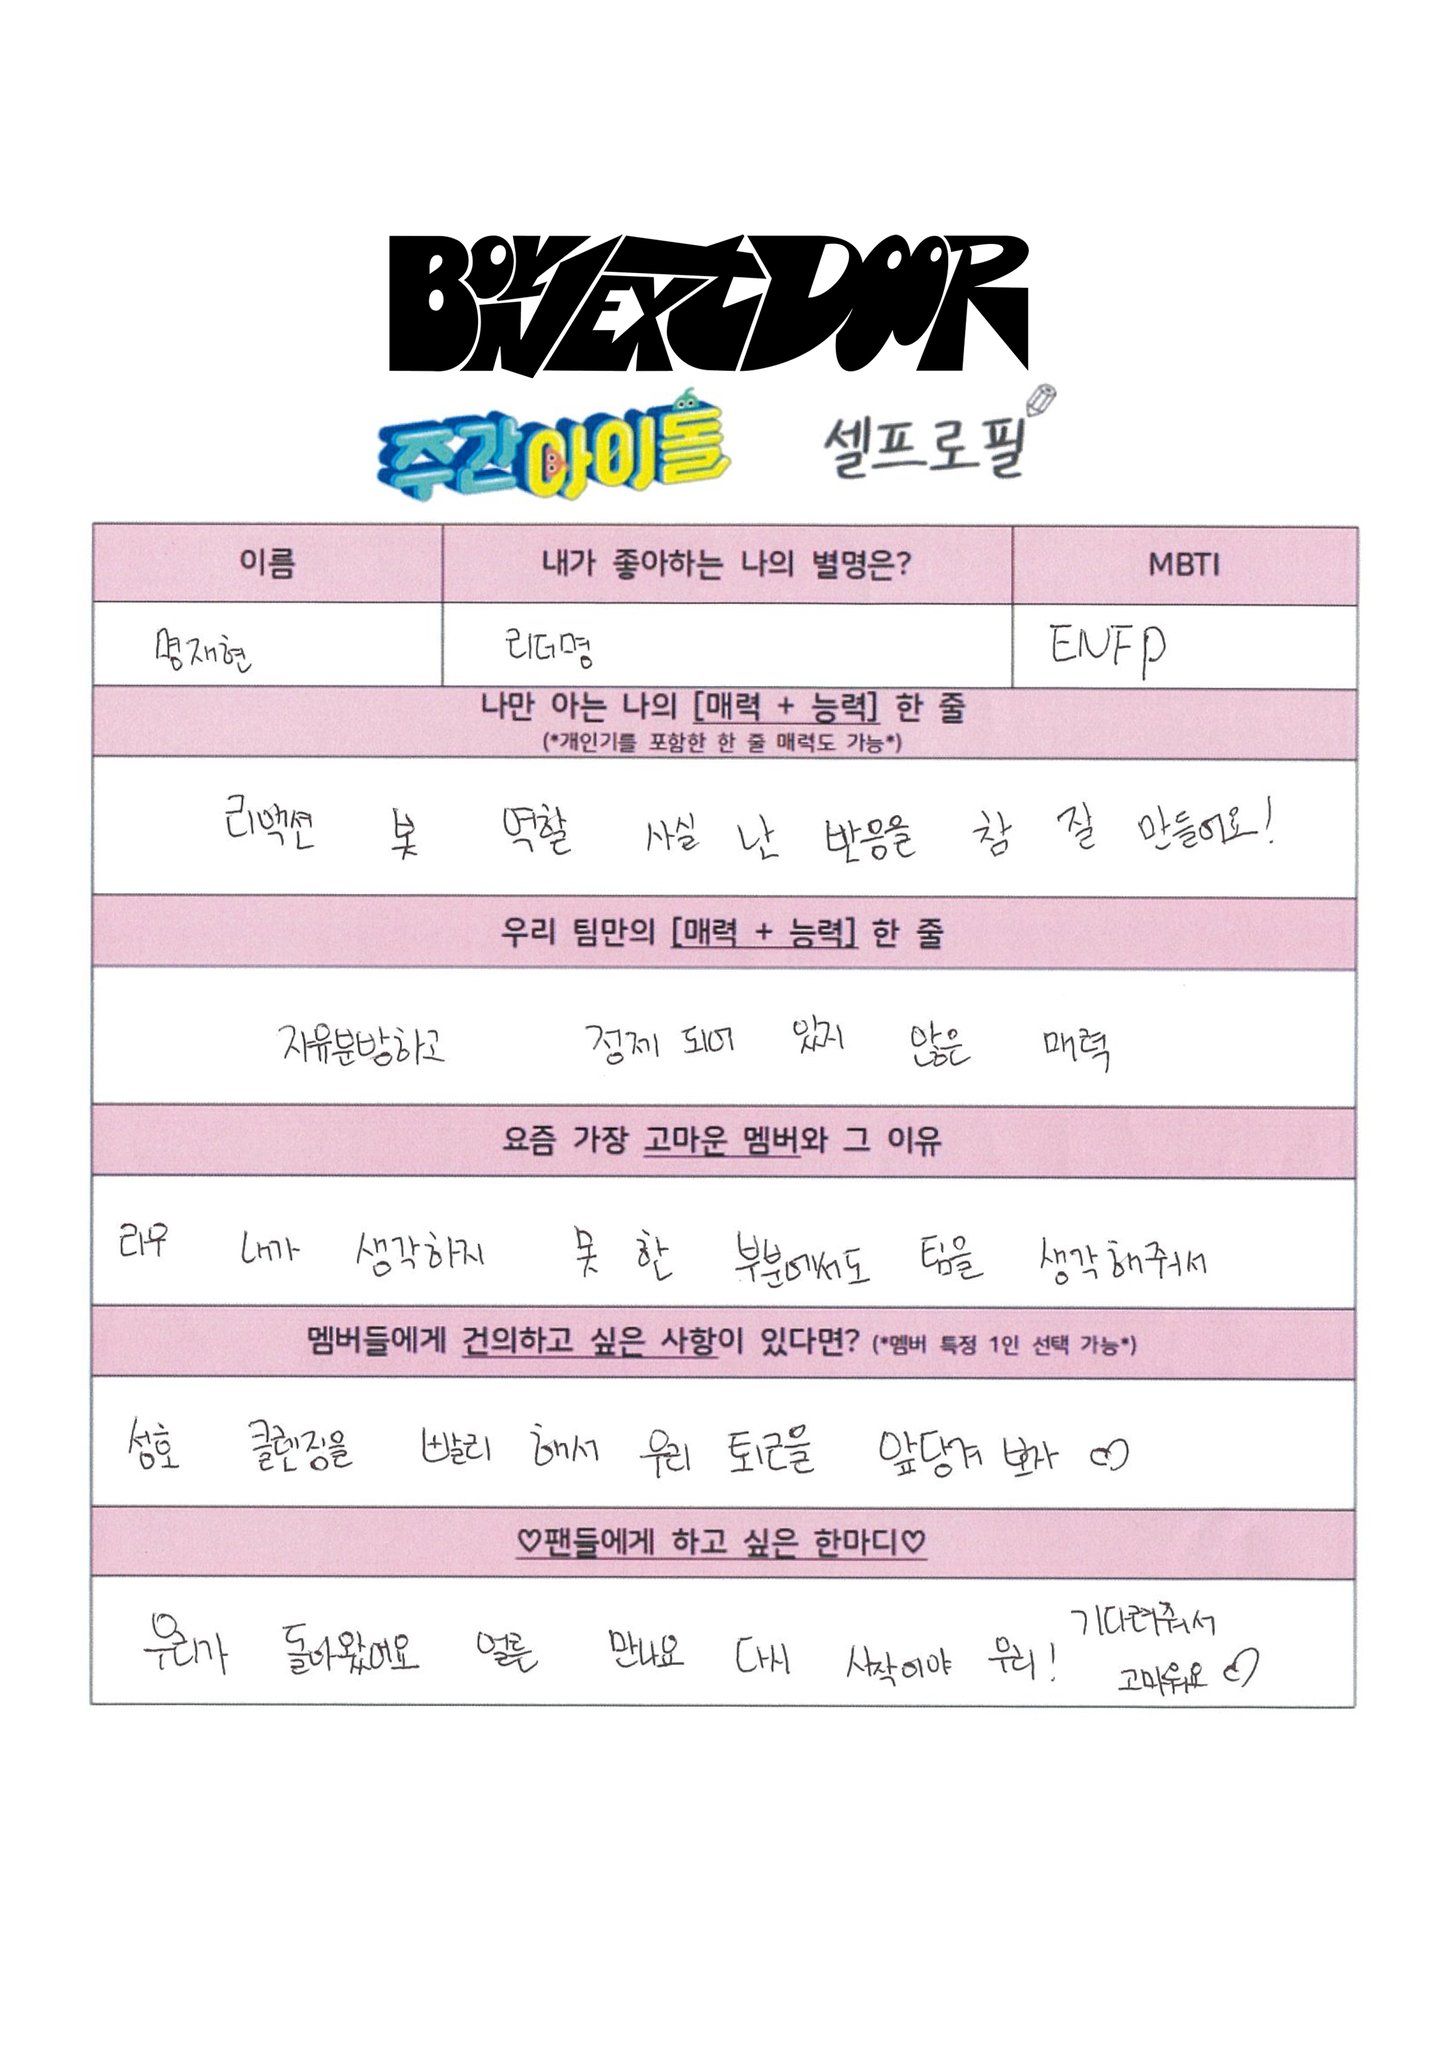 BOYNEXTDOOR
주간아이돌 셀프로필
이름 내가 좋아하는 나의 별명은? MBTI
명재현 리더명 ENFP
나만 아는 나의 [매력 + 능력] 한 줄
(*개인기를 포함한 한 줄 매력도 가능*)
리액션 봇 역할 사실 난 반응을 참 잘 만들어요!
우리 팀만의 [매력 + 능력] 한 줄
자유분방하고 정제 되어 있지 않은 매력
요즘 가장 고마운 멤버와 그 이유
리우 내가 생각하지 못 한 부분에서도 팀을 생각해줘서
멤버들에게 건의하고 싶은 사항이 있다면? (*멤버 특정 1인 선택 가능*)
성호 클렌징을 빨리 해서 우리 퇴근을 앞당겨 보자 ♡
♡팬들에게 하고 싶은 한마디♡
우리가 돌아왔어요 얼른 만나요 다시 시작이야 우리! 기다려줘서
고마워요 ♡